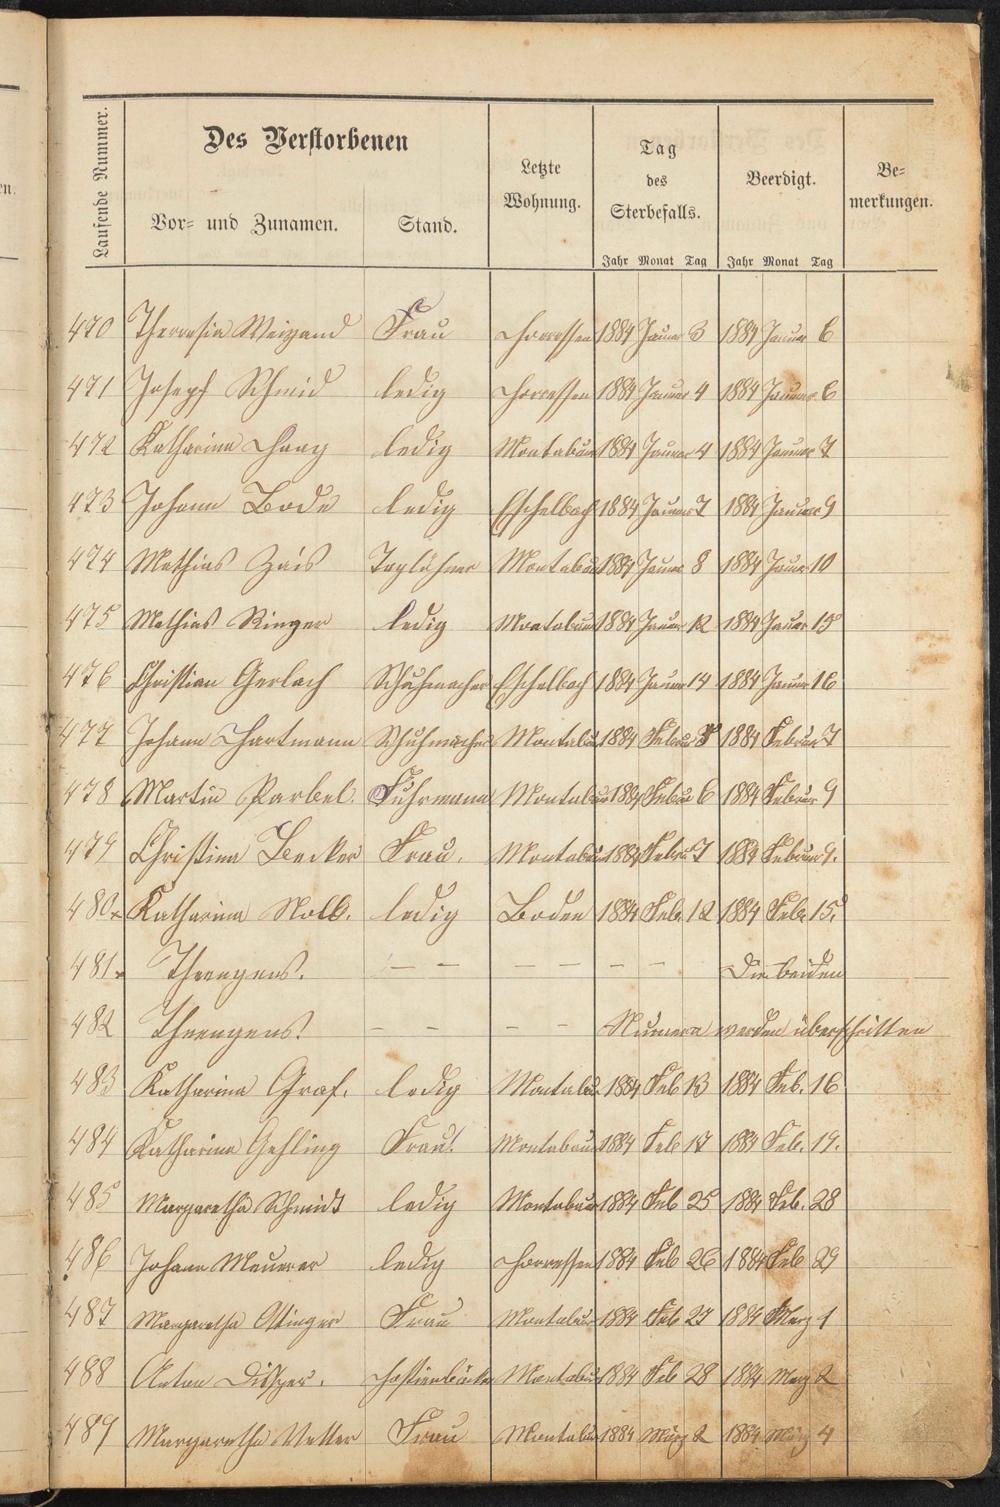 Laufende Nummer.
Des Verstorbenen
Vor= und Zunamen.
Stand.
Letzte
Wohnung.
Tag
des
Sterbefalls.
Jahr Monat Tag
Beerdigt.
Jahr Monat Tag
Be=
merkungen.
470 Theresia Weigand Frau Horressen 1884 Januar 3 1884 Januar 6
471 Joseph Schmid ledig Horressen 1884 Januar 4 1884 Januar 6
472 Katharina Haag ledig Montabaur 1884 Januar 4 1884 Januar 7
473 Johann Bode ledig Eschelbach 1884 Januar 7 1884 Januar 9
474 Mathias Zeis Taglöhner Montabaur 1884 Januar 8 1884 Januar 10
475 Mathias Ringer ledig Montabaur 1884 Januar 12 1884 Januar 15
476 Christian Gerlach Schuhmacher Eschelbach 1884 Januar 14 1884 Januar 16
477 Johann Hartmann Schuhmacher Montabaur 1884 Februar 1884 Februar 7
478 Martin Parbel. Fuhrmann Montabaur 1884 Februar 6 1884 Februar 9
479 Christina Becker Frau. Montabaur 1884 Februar 7 1884 Februar 9.
480 Katharina Noll. ledig Boden 1884 Feb. 12 1884 Feb. 15.
481 — — — — — — — Die beiden
482 — — — — Numern werden überschritten
483 Katharina Graf. ledig Montabaur 1884 Feb 13 1884 Feb. 16
484 Katharina Gehling Frau. Montabaur 1884 Feb 17 1884 Feb. 19.
485 Margaretha Schmidt ledig Montabaur 1884 Feb 25 1884 Feb. 28
486 Johann Meurer ledig Horressen 1884 Feb 26 1884 Feb 29
487 Margaretha Ottinger Frau Montabaur 1884 Feb 27 1884 Merz 1
488 Anton Montabaur 1884 Feb 28 1884 Merz 2
489 Margaretha Vetter Frau Montabaur 1884 März 2 1884 März 4